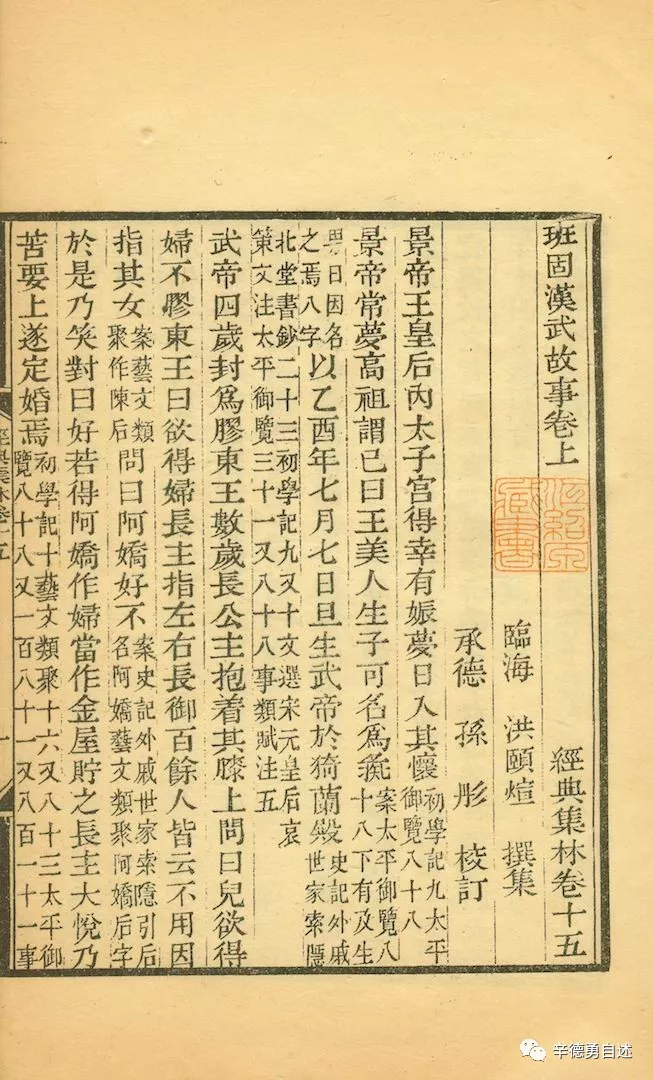 班固漢武故事卷上　經典集林卷十五
臨海　洪頤煊　撰集
承德　孫彤　校訂
景帝王皇后內太子宮得幸有娠夢日入其懷初學記九太平御覽八十八
景帝常夢高祖謂己曰王美人生子可名爲彘案太平御覽八十八下有及生
男日因名之焉八字以乙酉年七月七日旦生武帝於猗蘭殿史記外戚世家索隱
北堂書鈔二十三初學記九又十文選宋元皇后哀策文注太平御覽三十一又八十八事類賦注五
武帝四歲封爲膠東王數歲長公主抱着其膝上問曰兒欲得
婦不膠東王曰欲得婦長主指左右長御百餘人皆云不用因
指其女案藝文類聚作陳后問曰阿嬌好不案史記外戚世家索隱引后名阿嬌藝文類聚阿嬌后字
於是乃笑對曰好若得阿嬌作婦當作金屋貯之長主大悅乃
苦要上遂定婚焉初學記十藝文類聚十六又八十三太平御覽八十八又一百八十一又八百一十一事
經典集林卷十五　一
辛德勇自述